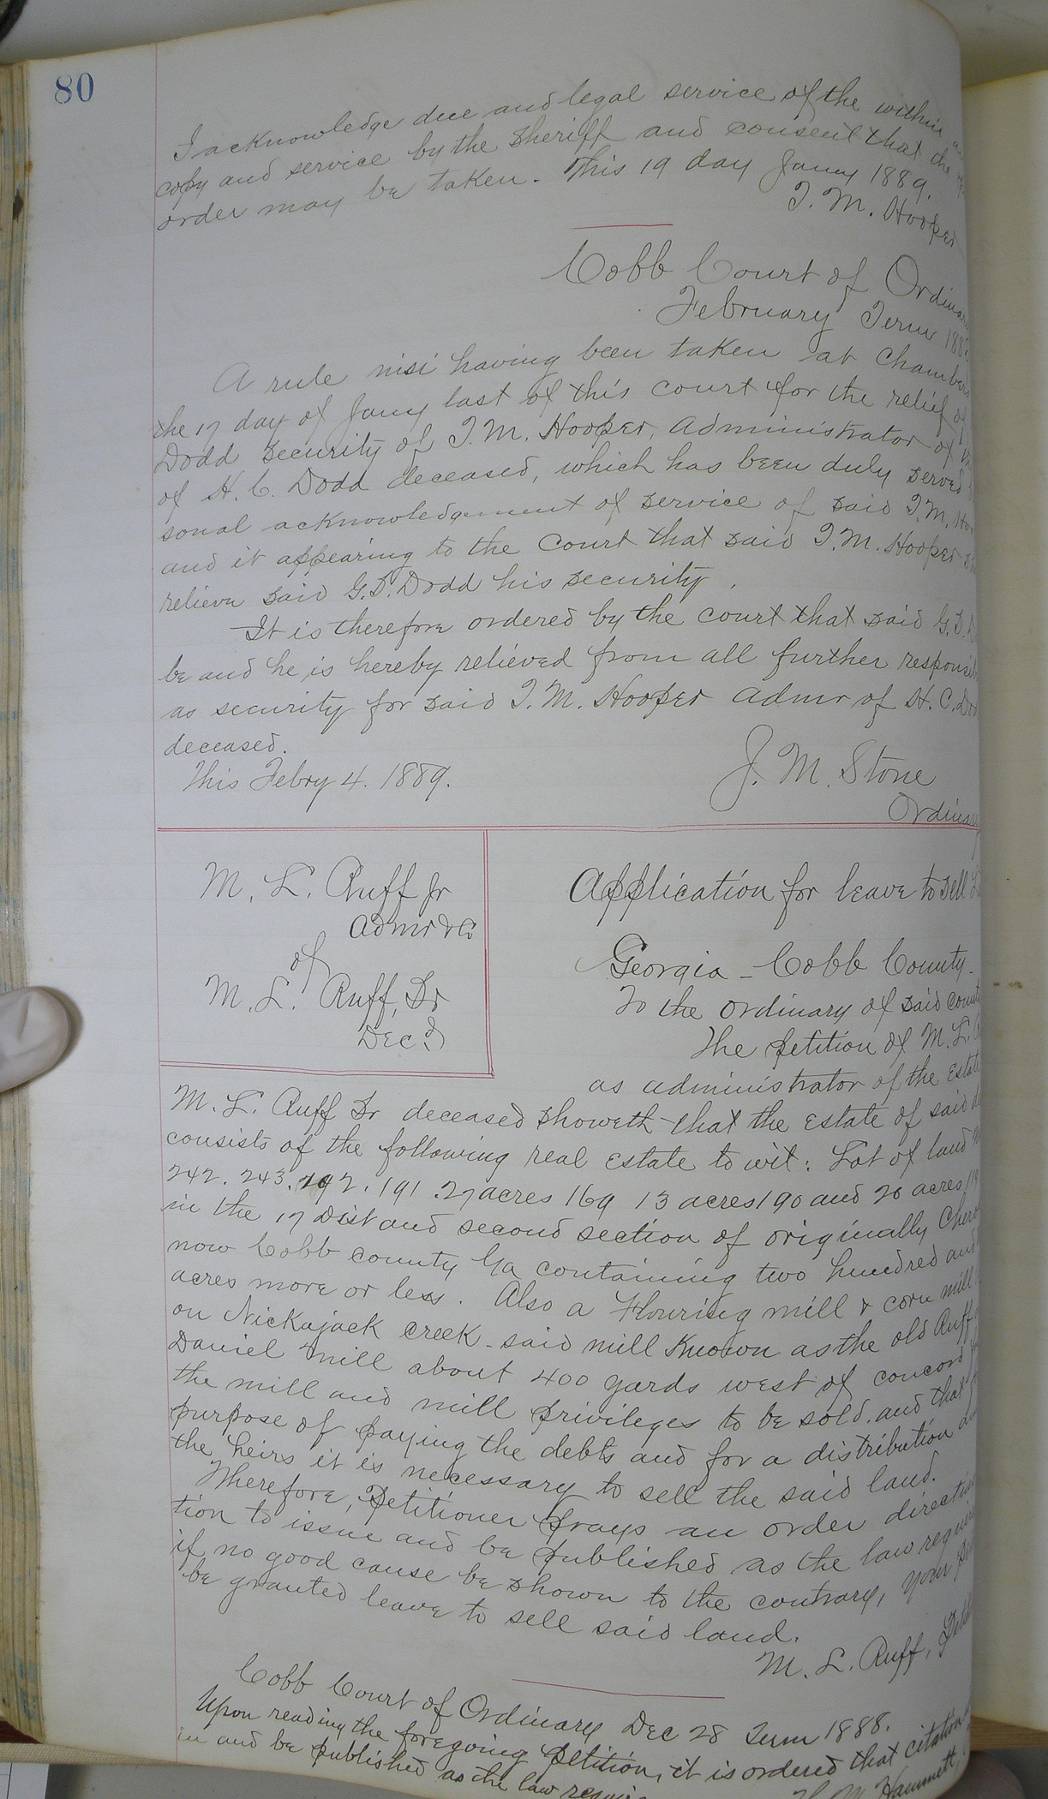 80
I acknowledge due and legal service of the within
copy and service by the Sheriff and consent that the
order may be taken. This 19 day Jany 1889.
T. M. Hooper
Cobb Court of Ordinar
February Term 188
A rule nisi having been taken at Chambers
the 17 day of Jany last of this court for the relief of
Dodd security of T. M. Hooper, Administrator of
of H. C. Dodd deceased, which has been duly served
sonal acknowledgement of service of said T. M. Ho
and it appearing to the Court that said T. M. Hooper
relieve said G. T. Dodd his security.
It is therefore ordered by the court that said G. T.
be and he is hereby relieved from all further responsi
as security for said T. M. Hooper Admr of H. C. Do
deceased.
This Febry 4. 1889.
J. M. Stone
Ordinar
M. L. Ruff Jr
Admr &c
of
M. L. Ruff, Sr
Dec.d
Application for leave to sell
Georgia - Cobb County -
To the Ordinary of said count
The petition of M. L.
as administrator of the Estate
M. L. Ruff Sr deceased Showeth that the Estate of said
consists of the following real Estate to wit: Lot of land
242. 243. 192. 191. 27 acres 169 13 acres 190 and 20 acres
in the 17 Dist and second section of originally Cher
now Cobb county Ga containing two hundred and
acres more or less. Also a Flouring mill & corn mill
on Nickajack creek - said mill Known as the old Ruff
Daniel mill about 400 yards west of concord
the mill and mill privileges to be sold, and that
purpose of paying the debts and for a distribution
the heirs it is necessary to sell the said land.
Wherefore, Petitioner prays an order directin
tion to issue and be published as the law requi
if no good cause be shown to the contrary, your
be granted leave to sell said land.
M. L. Ruff,
Cobb Court of Ordinary Dec 28 Term 1888.
Upon reading the foregoing petition, it is ordered that citation
and be published as the law requi
M. Hammett